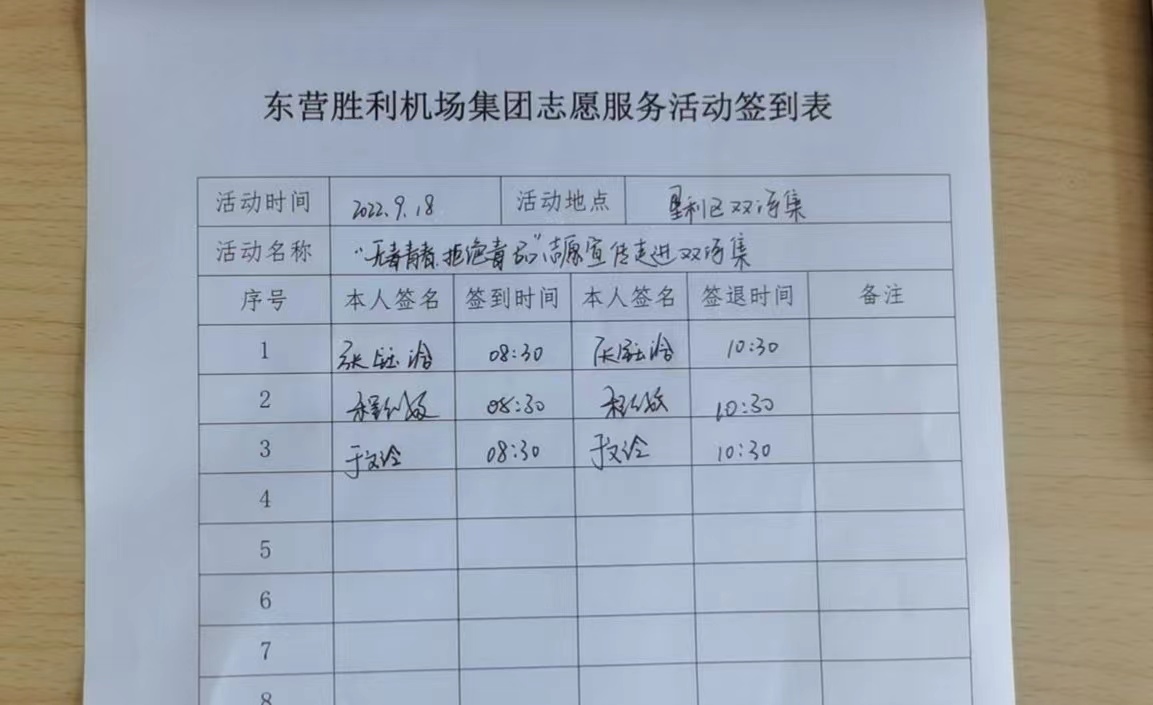 东营胜利机场集团志愿服务活动签到表
活动时间 2022.9.18 活动地点 垦利区双语集
活动名称 “无毒青春,拒绝毒品”志愿宣传走进双语集
序号 本人签名 签到时间 本人签名 签退时间 备注
1 张钰涵 08:30 张钰涵 10:30
2 08:30 10:30
3 于文玲 08:30 于文玲 10:30
4
5
6
7
8